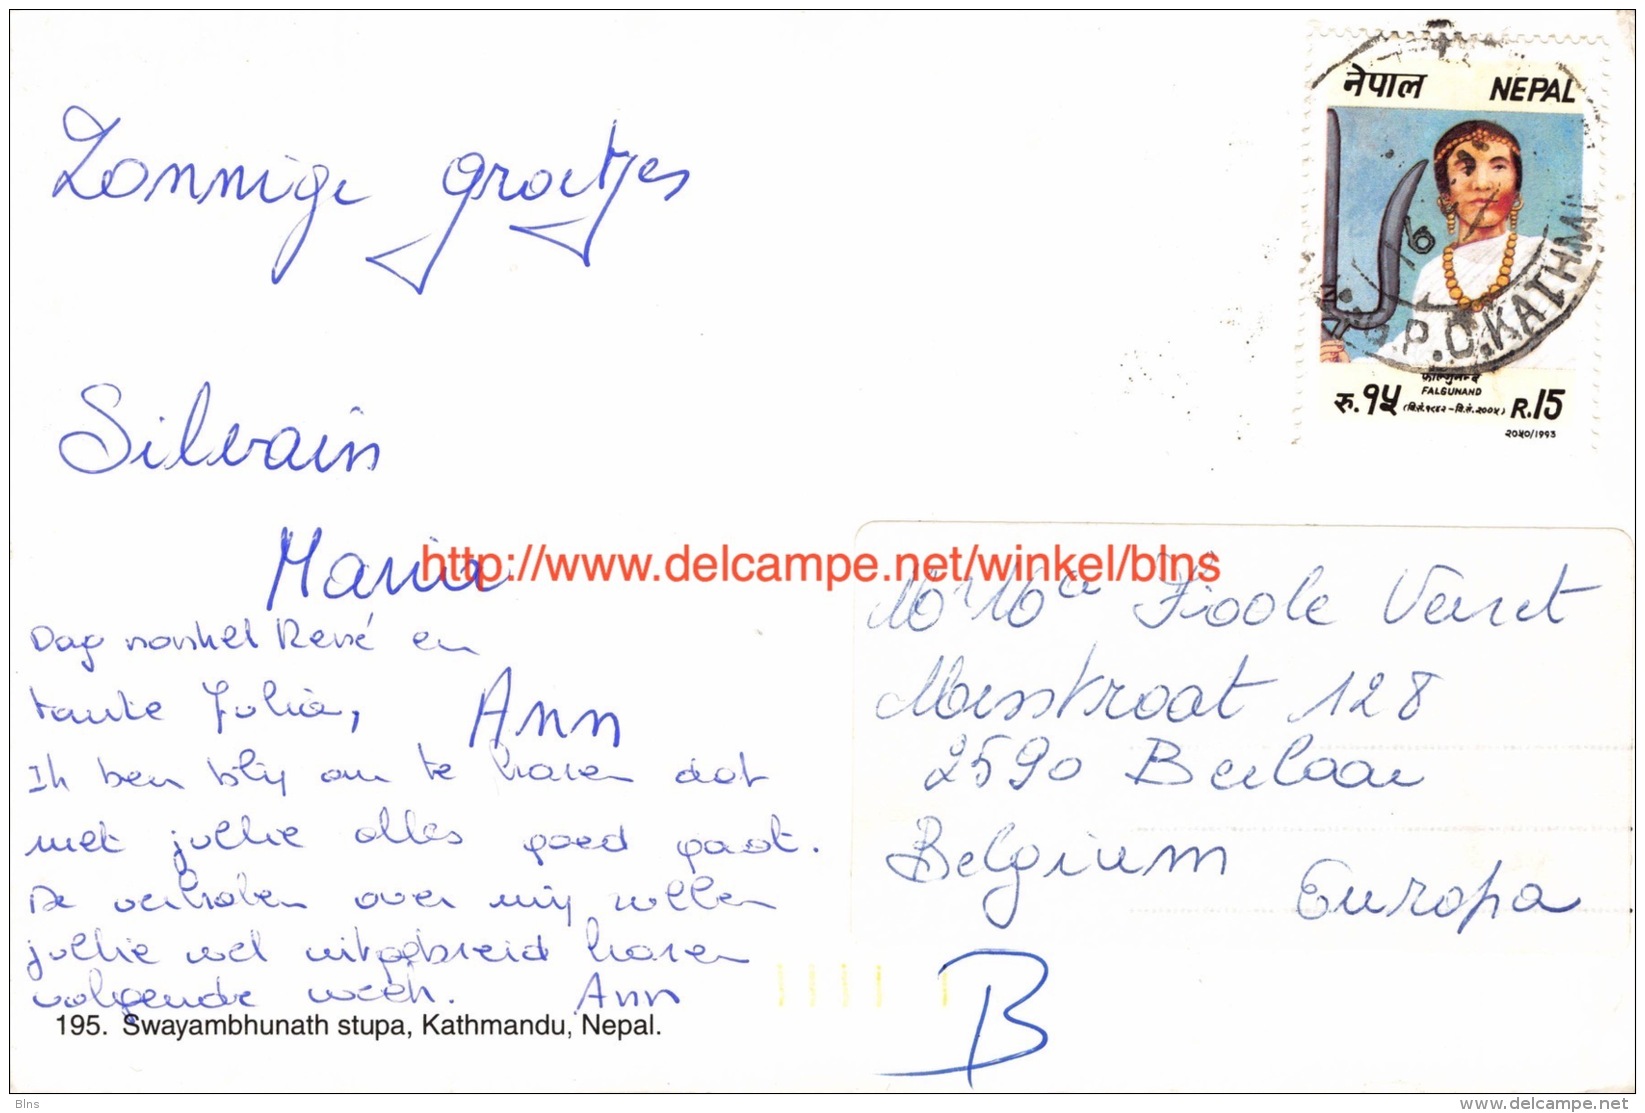 Zonnige groetjes
Silvain
Maria
Ann
Dag nonkel René en
tante Julia,
Ik ben blij om te horen dat
met jullie alles goed gaat.
De verhalen over mij zullen
jullie wel uitgebreid horen
volgende week. Ann
195. Swayambhunath stupa, Kathmandu, Nepal.
नेपाल NEPAL
G.P.O. KATHM
फाल्गुनन्द
FALGUNAND
रु. १५ (वि.सं. १९४२ - वि.सं. २००५) R.15
२०५०/1993
http://www.delcampe.net/winkel/blns
Mr Mce
128
2590 Berlaar
Belgium
Europa
B
Blns
www.delcampe.net